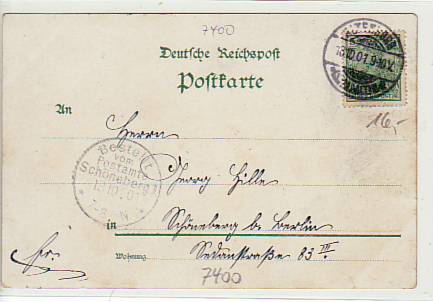 7400
Deutsche Reichspost
Postkarte
An
Herrn
Georg Hille
in Schöneberg b/ Berlin
Wohnung Sedanstraße 83 III
Bestellt
vom
Postamte
Schöneberg
18.10.01 9-10V.
16,-
7400